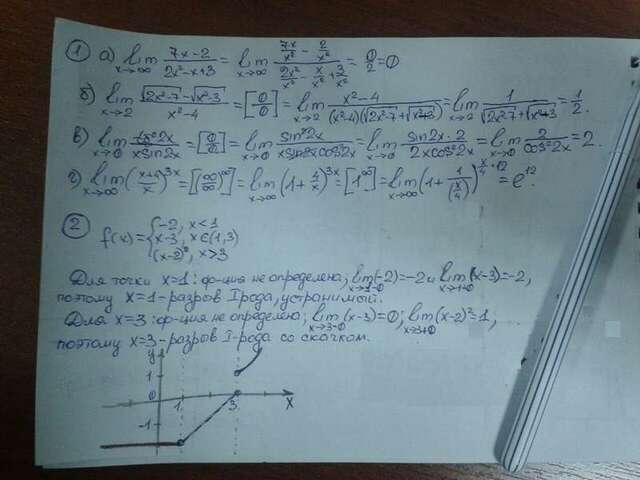 ① а) lim x→∞ (7x-2)/(2x²-x+3) = lim x→∞ (7x/x² - 2/x²)/(2x²/x² - x/x² + 3/x²) = 0/2 = 0
б) lim x→2 (√(2x²-7) - √(x²-3))/(x²-4) = [0/0] = lim x→2 (x²-4)/((x²-4)(√(2x²-7)+√(x²-3))) = lim x→2 1/(√(2x²-7)+√(x²-3)) = 1/2.
в) lim x→0 tg²2x/(x sin2x) = [0/0] = lim x→0 sin²2x/(x sin2x cos²2x) = lim x→0 (sin2x·2)/(2x cos²2x) = lim x→0 2/cos²2x = 2.
г) lim x→∞ ((x+4)/x)^(3x) = [(∞/∞)^∞] = lim x→∞ (1+4/x)^(3x) = [1^∞] = lim x→∞ (1+1/(x/4))^(x/4·12) = e^12.
② f(x) = { -2, x<1
x-3, x∈(1,3)
(x-2)², x>3
Для точки x=1: ф-ция не определена; lim x→1-0 (-2) = -2 и lim x→1+0 (x-3) = -2,
поэтому x=1 - разрыв I рода, устранимый.
Для x=3: ф-ция не определена; lim x→3-0 (x-3) = 0; lim x→3+0 (x-2)² = 1,
поэтому x=3 - разрыв I-рода со скачком.
y
1
0 1 3 x
-1